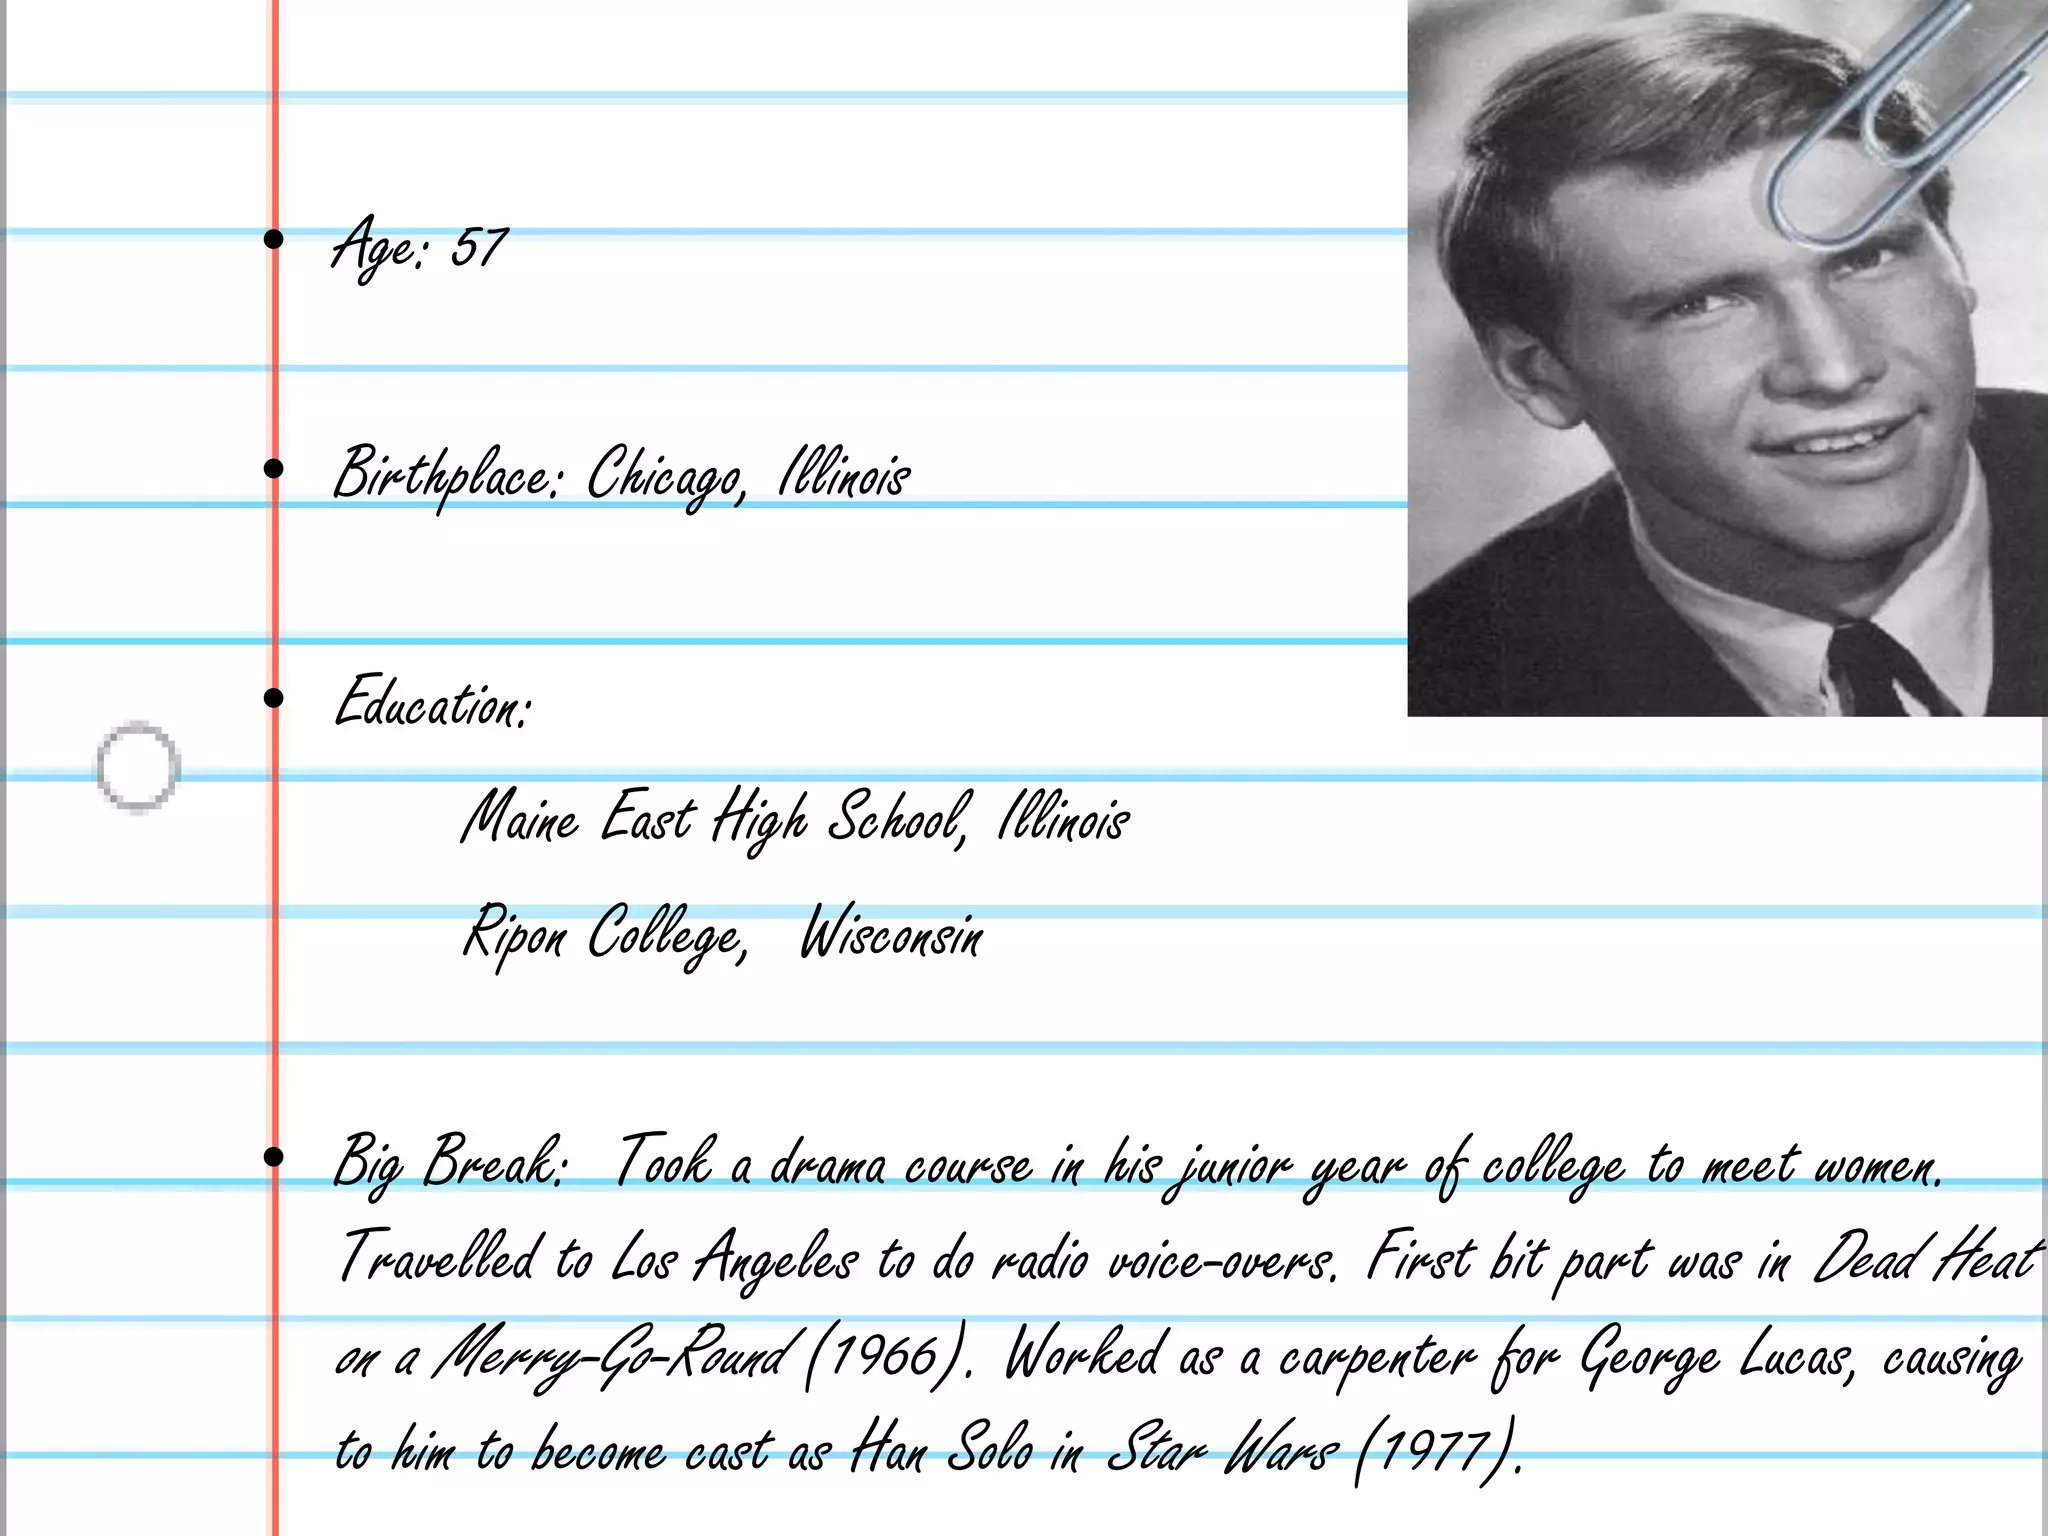 • Age: 57
• Birthplace: Chicago, Illinois
• Education:
Maine East High School, Illinois
Ripon College, Wisconsin
• Big Break: Took a drama course in his junior year of college to meet women.
Travelled to Los Angeles to do radio voice-overs. First bit part was in Dead Heat
on a Merry-Go-Round (1966). Worked as a carpenter for George Lucas, causing
to him to become cast as Han Solo in Star Wars (1977).